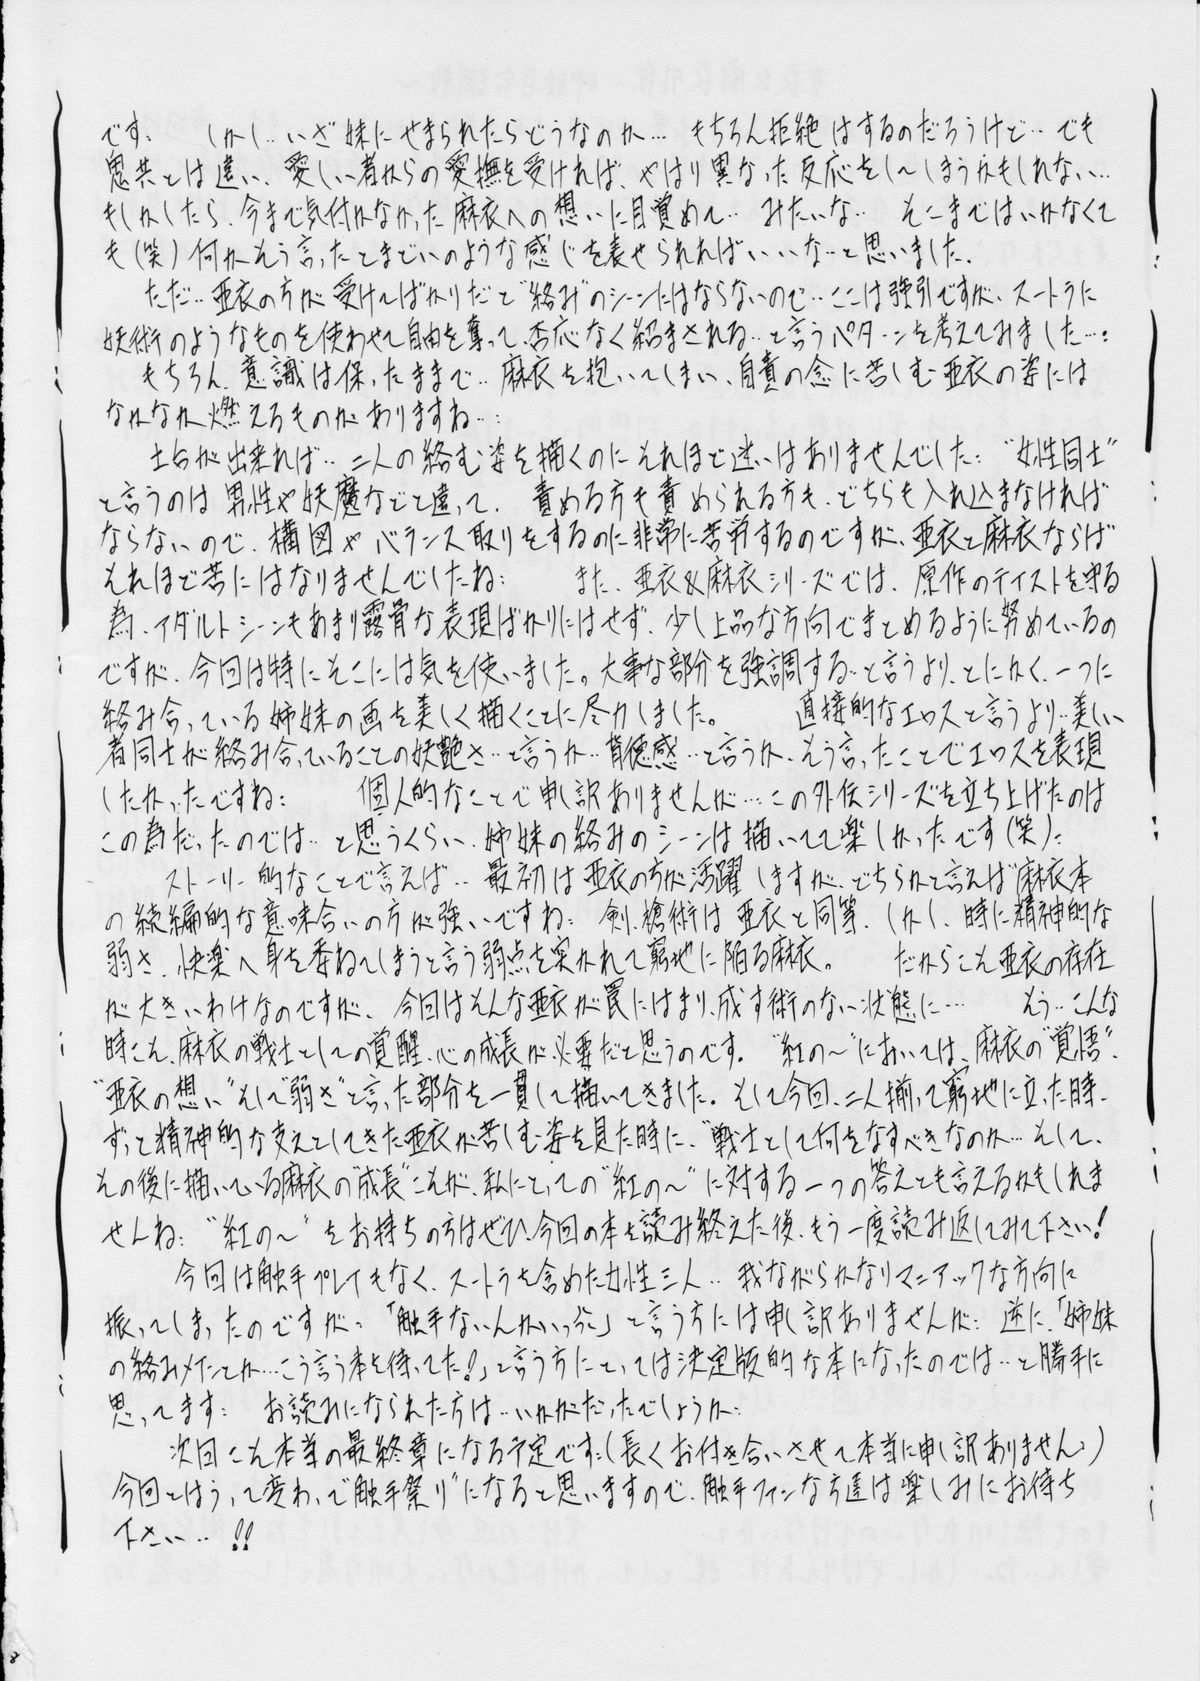 です。 しかし‥いざ妹にせまられたらどうなのか… もちろん拒絶はするのだろうけど‥でも
鬼共とは違い、愛しい者からの愛撫を受ければ、やはり異なった反応をしてしまうかもしれない…
もしかしたら、今まで気付かなかった麻衣への想いに目覚めて‥ みたいな‥ そこまではいかなくて
も(笑)何かそう言ったとまどいのような感じを表せられればいいな…と思いました。
ただ‥亜衣の方が受けてばかりだと“絡み”のシーンにはならないので‥ここは強引ですが、スートラに
妖術のようなものを使わせて自由を奪って、否応なく絡まされる…と言うパターンを考えてみました…。
もちろん、意識は保ったままで‥麻衣を抱いてしまい、自責の念に苦しむ亜衣の姿には
なかなか燃えるものがありますね…。
土台が出来れば‥二人の絡む姿を描くのにそれほど迷いはありませんでした。“女性同士”
と言うのは男性や妖魔などと違って、責める方も責められる方も、どちらも入れ込まなければ
ならないので、構図やバランス取りをするのに非常に苦労するのですが、亜衣と麻衣ならば
それほど苦にはなりませんでしたね。 また、亜衣&麻衣シリーズでは、原作のテイストを守る
為、アダルトシーンもあまり露骨な表現ばかりにはせず、少し上品な方向でまとめるように努めているの
ですが、今回は特にそこには気を使いました。大事な部分を強調する…と言うより、とにかく、一つに
絡み合っている姉妹の画を美しく描くことに尽力しました。 直接的なエロスと言うより‥美しい
者同士が絡み合っていることの妖艶さ…と言うか‥背徳感…と言うか、そう言ったことでエロスを表現
したかったですね。 個人的なことで申し訳ありませんが…この外伝シリーズを立ち上げたのは
この為だったのでは…と思うくらい、姉妹の絡みのシーンは描いてて楽しかったです(笑)。
ストーリー的なことで言えば‥最初は亜衣の方が活躍しますが、どちらかと言えば“麻衣本”
の続編的な意味合いの方が強いですね。剣、槍術は亜衣と同等、しかし、時に精神的な
弱さ、快楽へ身を委ねてしまうと言う弱点を突かれて窮地に陥る麻衣。 だからこそ亜衣の存在
が大きいわけなのですが、今回はそんな亜衣が罠にはまり、成す術のない状態に… もう‥こんな
時こそ、麻衣の戦士としての覚醒、心の成長が必要だと思うのです。“紅の〜”においては、麻衣の“覚悟”、
“亜衣の想い”そして“弱さ”と言った部分を一貫して描いてきました。そして今回、二人揃って窮地に立った時、
ずっと精神的な支えとしてきた亜衣が苦しむ姿を見た時に、“戦士として何をなすべきなのか…そして、
その後に描いている麻衣の“成長”こそが、私にとっての“紅の〜”に対する一つの答えとも言えるかもしれま
せんね。“紅の〜”をお持ちの方はぜひ、今回の本を読み終えた後、もう一度読み返してみて下さい!
今回は触手プレイもなく、スートラを含めた女性三人‥我ながらかなりマニアックな方向に
振ってしまったのですが。「触手ないんかいっ」と言う方には申し訳ありませんが。逆に、「姉妹
の絡みメインとか…こう言う本を待ってた!」と言う方にとっては決定版的な本になったのでは…と勝手に
思ってます。 お読みになられた方は‥いかがだったでしょうか。
次回こそ本当の最終章になる予定です。(長くお付き合いさせて本当に申し訳ありません。)
今回とはうって変わって“触手祭り”になると思いますので、触手ファンな方達は楽しみにお待ち
下さい‥!!
8